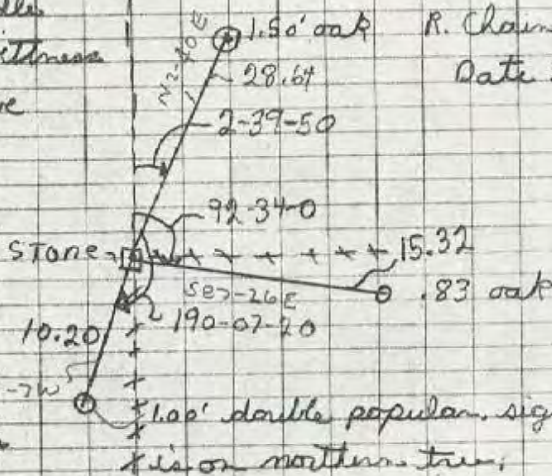 1.50' oak
R. Chain
Date
28.64
N2-40E
2-39-50
92-34-0
Stone
15.32
S87-26E
.83 oak
190-07-20
10.20
-7W
1.00' double popular. sig
is on northern tree,